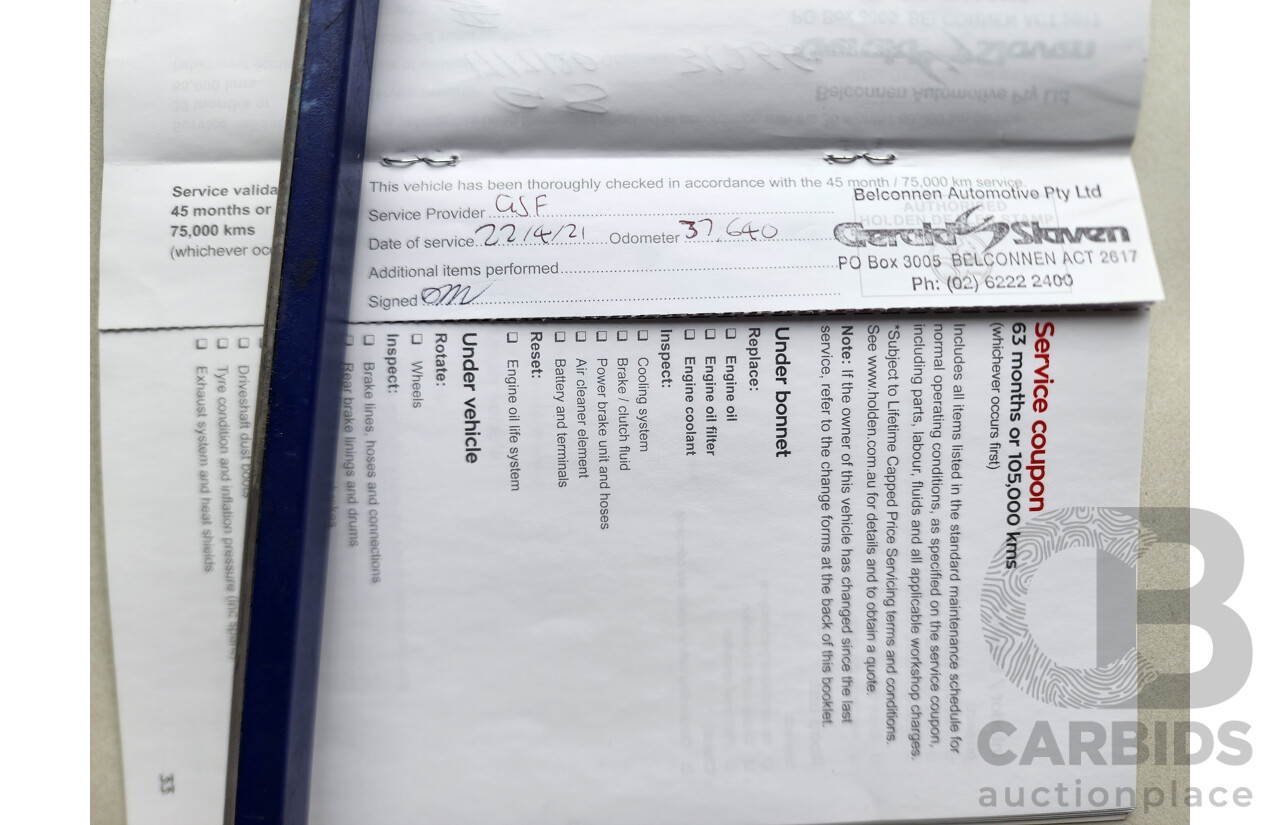 Service valida
45 months or
75,000 kms
(whichever occ
This vehicle has been thoroughly checked in accordance with the 45 month / 75,000 km service.
Service Provider GSF
Date of service 22/4/21 Odometer 37,640
Additional items performed
Signed
Belconnen Automotive Pty Ltd
AUTHORISED
HOLDEN DEALER STAMP
Gerald Slaven
PO Box 3005 BELCONNEN ACT 2617
Ph: (02) 6222 2400
Service coupon
63 months or 105,000 kms
(whichever occurs first)
Includes all items listed in the standard maintenance schedule for
normal operating conditions, as specified on the service coupon,
including parts, labour, fluids and all applicable workshop charges.
*Subject to Lifetime Capped Price Servicing terms and conditions.
See www.holden.com.au for details and to obtain a quote.
Note: If the owner of this vehicle has changed since the last
service, refer to the change forms at the back of this booklet.
Under bonnet
Replace:
Engine oil
Engine oil filter
Engine coolant
Inspect:
Cooling system
Brake / clutch fluid
Power brake unit and hoses
Air cleaner element
Battery and terminals
Reset:
Engine oil life system
Under vehicle
Rotate:
Wheels
Inspect:
Brake lines, hoses and connections
Rear brake linings and drums
Driveshaft dust boots
Tyre condition and inflation pressure (inc spare)
Exhaust system and heat shields
33
CARBIDS
auctionplace